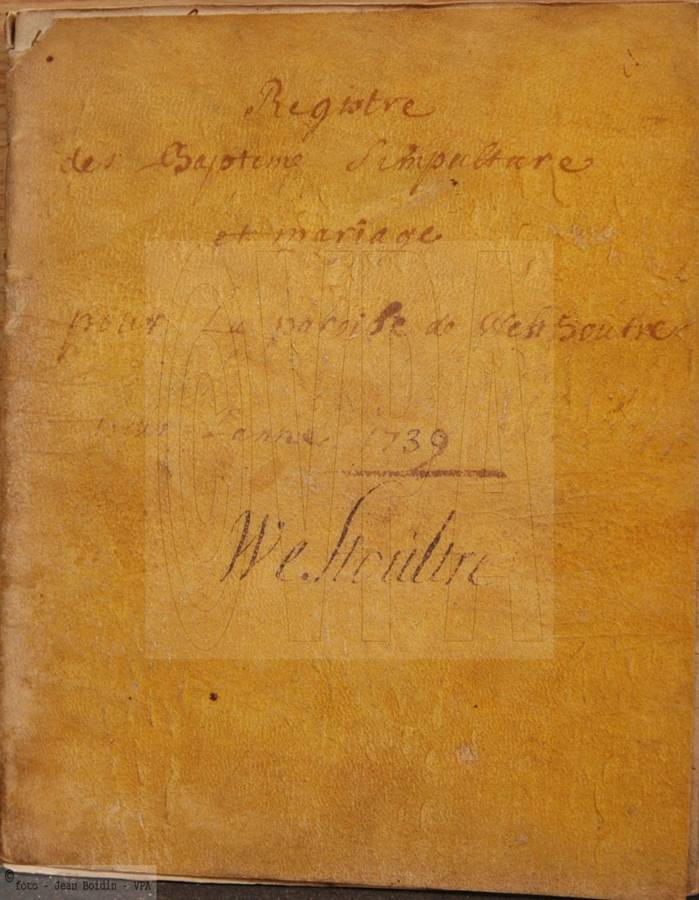 Registre
des Baptême Simpulture
et mariage
pour La paroisse de WestSoutre
pour Lanné 1739
WeStoultre
©VPA
© foto - Jean Boidin - VPA